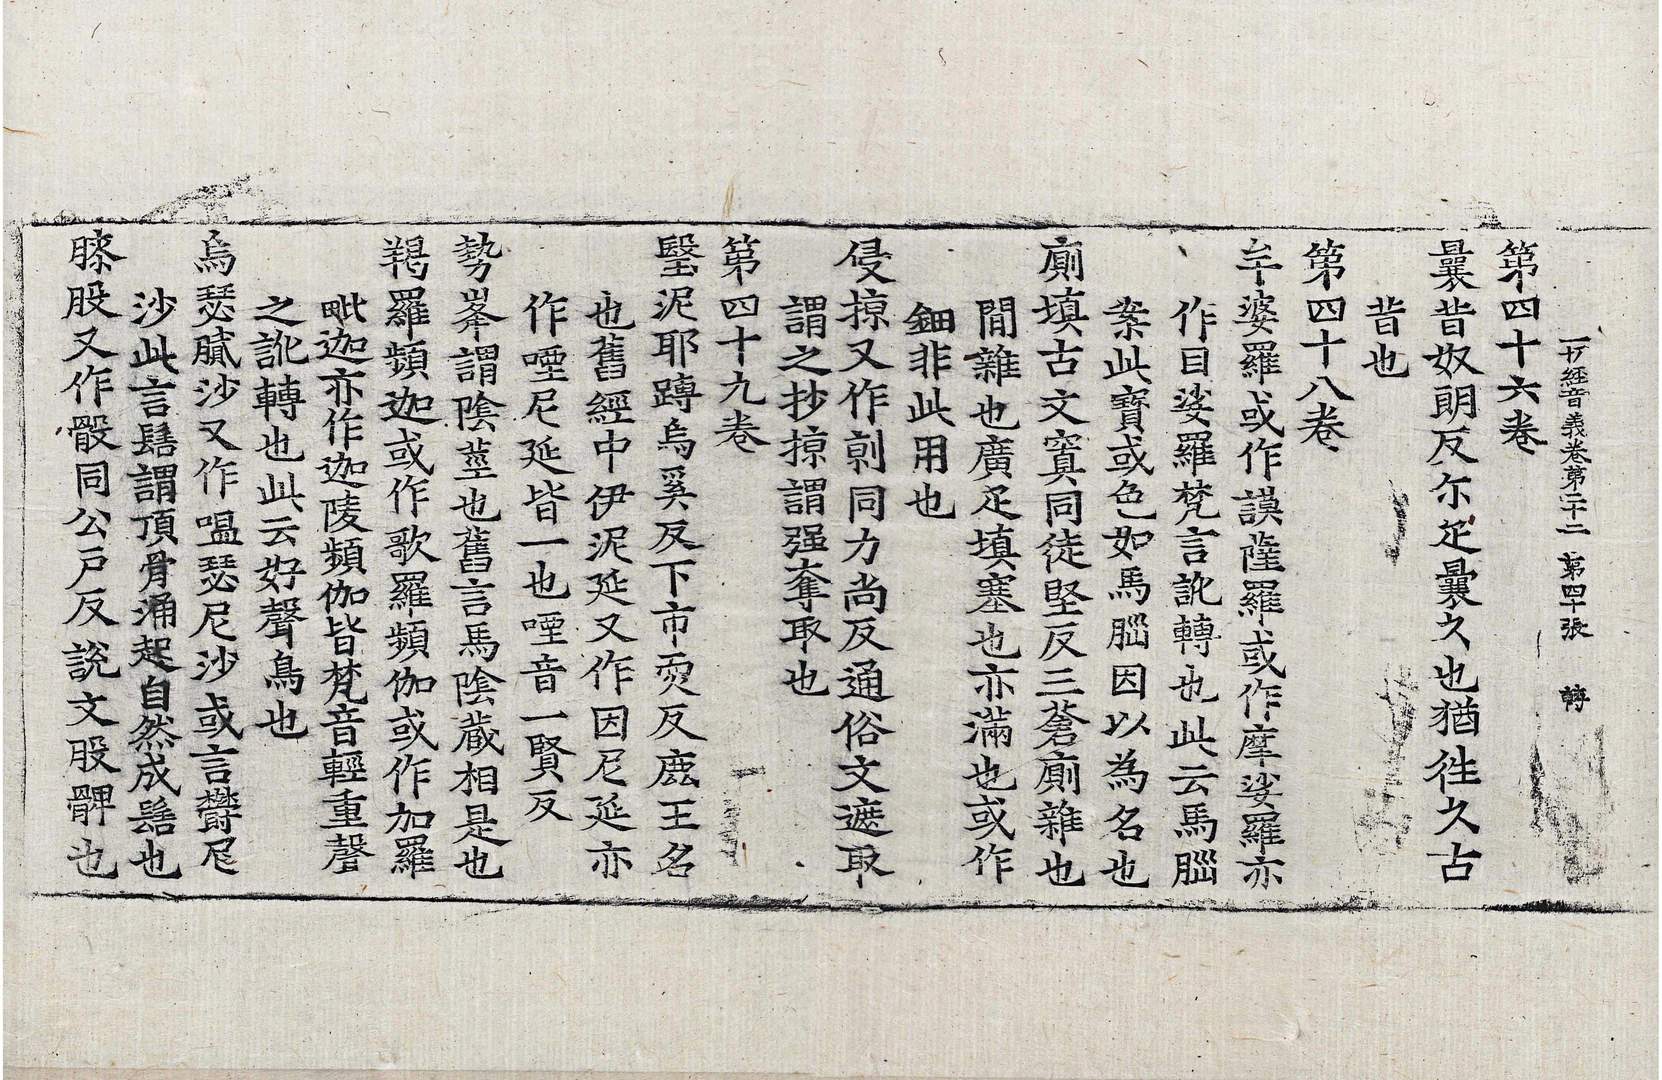 一切經音義卷第二十二 第四十張 轉
第四十六卷
曩昔奴朗反尒疋曩久也猶徃久古
昔也
第四十八卷
牟娑羅或作謨薩羅或作摩娑羅亦
作目娑羅梵言訛轉也此云馬腦
案此寶或色如馬腦因以為名也
廁填古文窴同徒堅反三蒼廁雜也
間雜也廣疋填塞也亦滿也或作
鈿非此用也
侵掠又作剠同力尚反通俗文遮取
謂之抄掠謂强奪取也
第四十九卷
瑿泥耶蹲烏奚反下市耎反鹿王名
也舊經中伊泥延又作因尼延亦
作㖶尼延皆一也㖶音一賢反
勢峯謂陰莖也舊言馬陰藏相是也
羯羅頻迦或作歌羅頻伽或作加羅
毗迦亦作迦陵頻伽皆梵音輕重聲
之訛轉也此云好聲鳥也
烏瑟膩沙又作嗢瑟尼沙或言欝尼
沙此言髻謂頂骨涌起自然成髻也
䏶股又作骰同公戸反說文股髀也